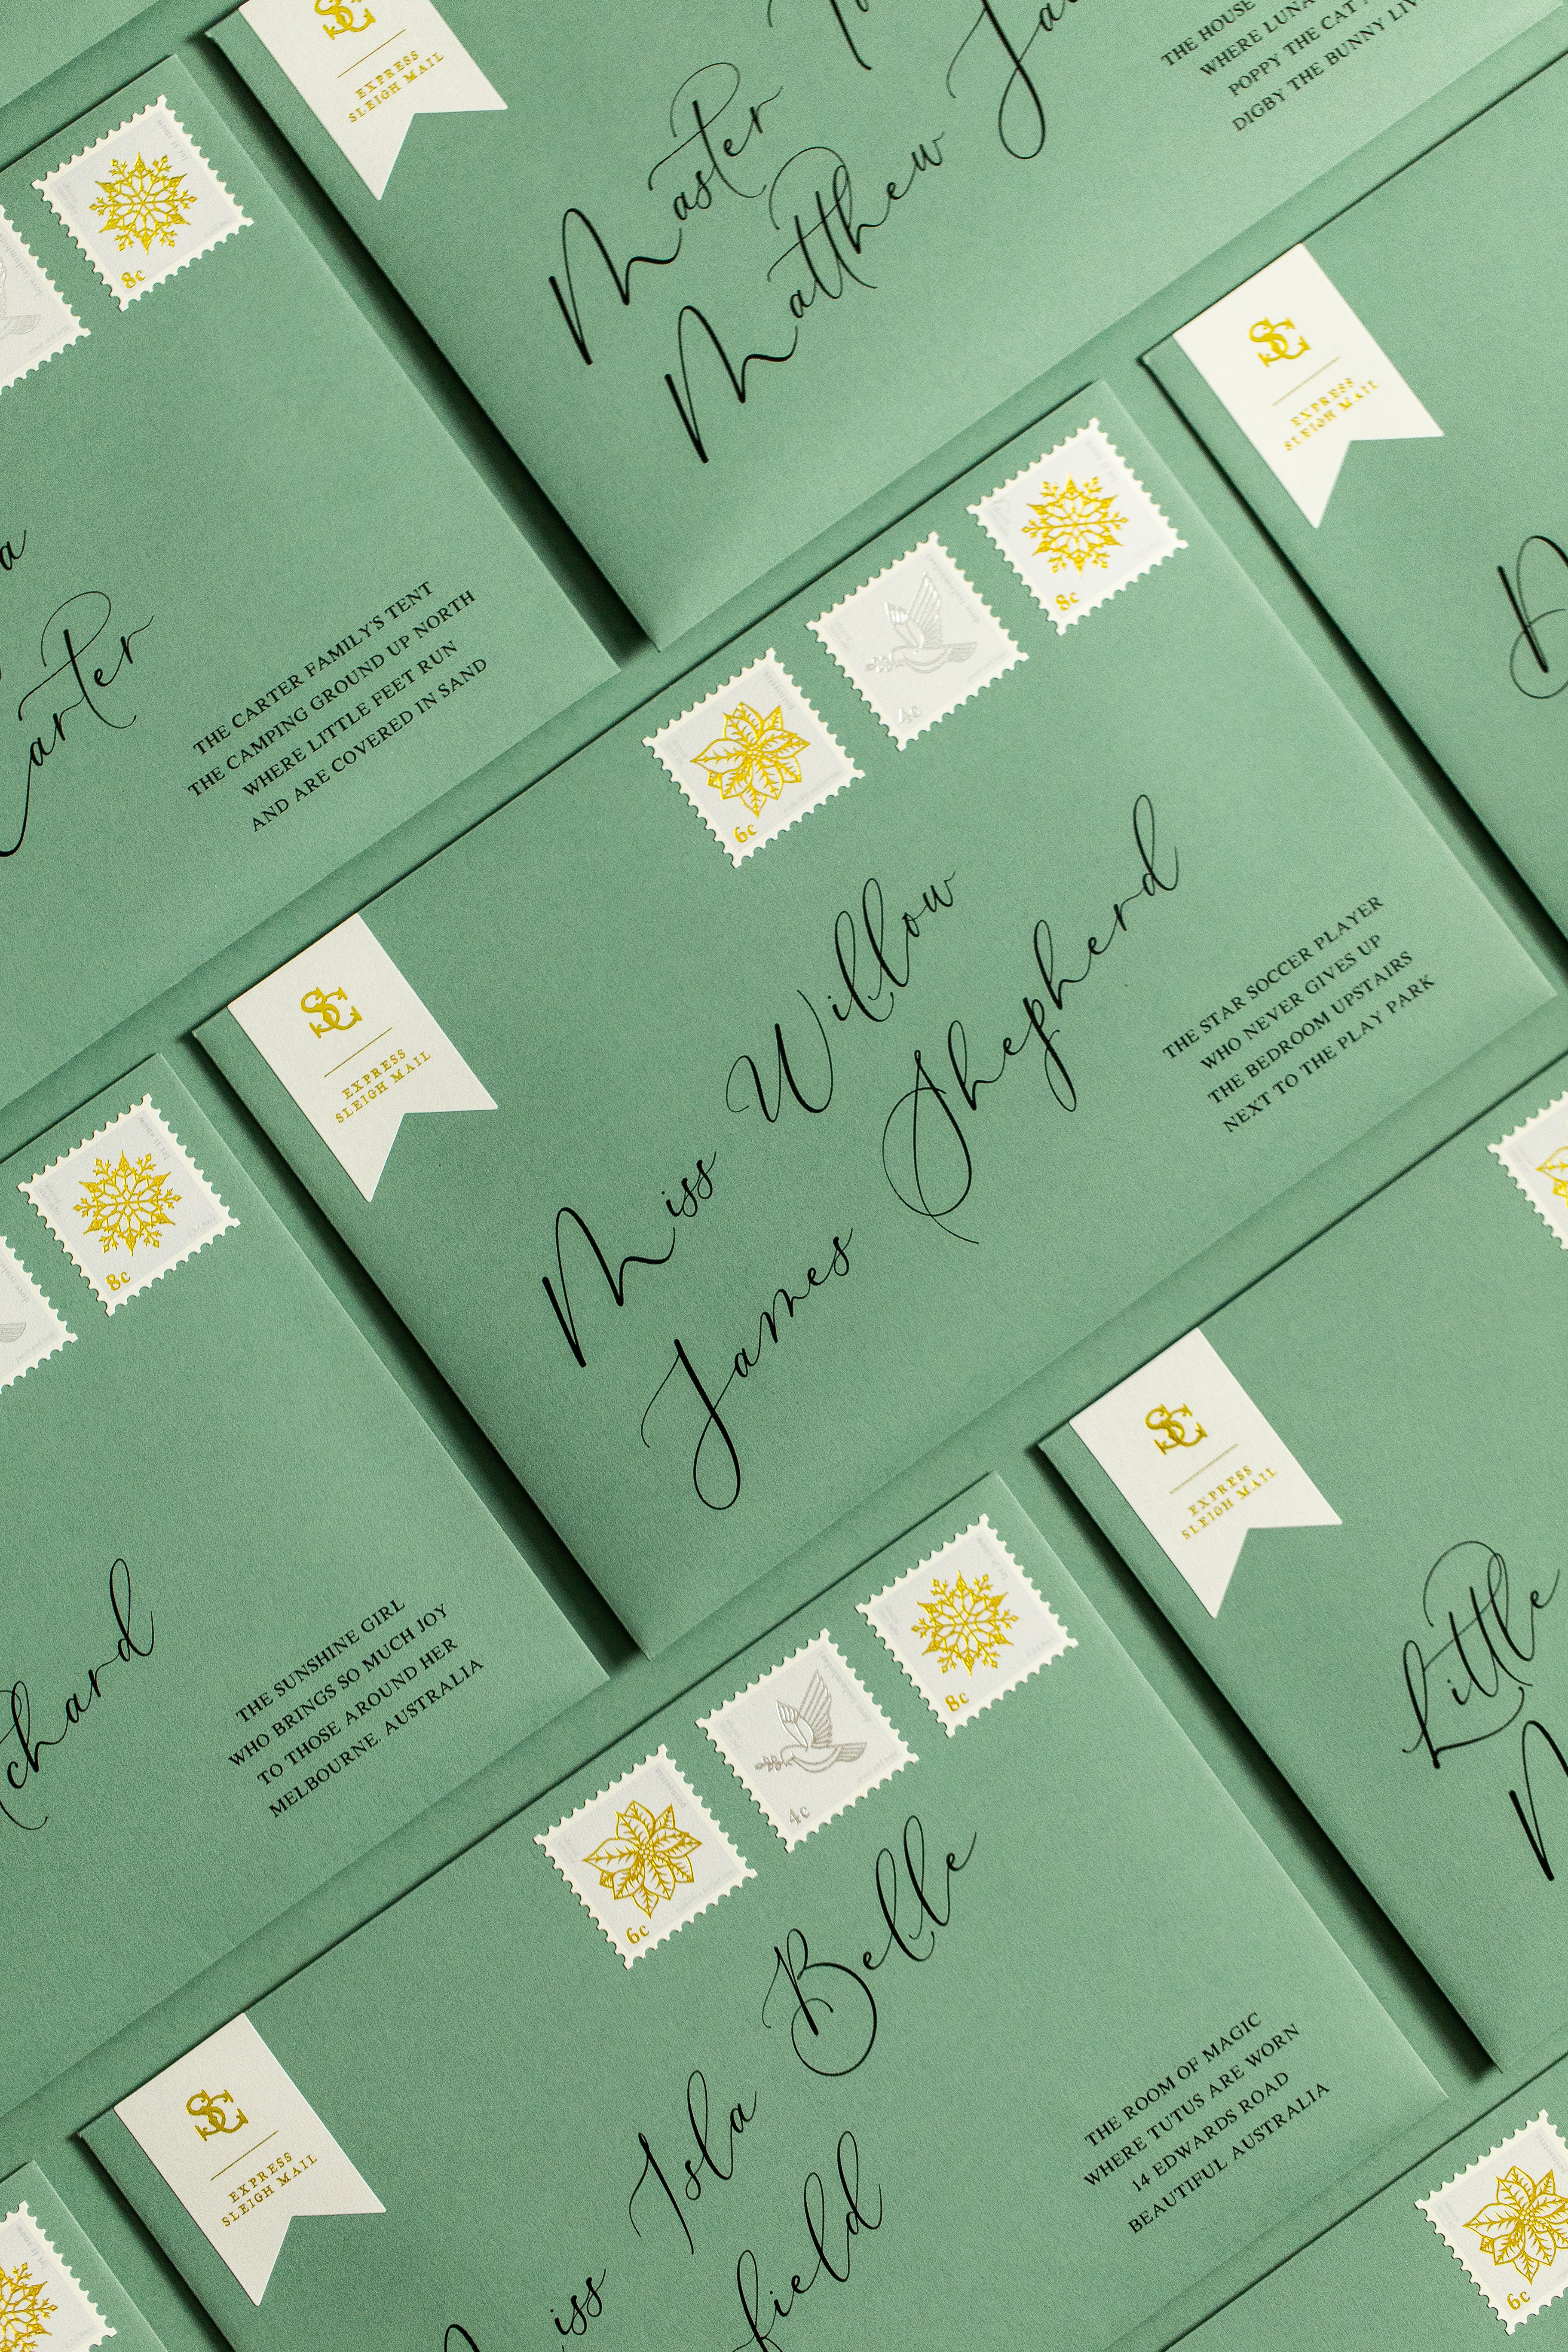 SC
EXPRESS
SLEIGH MAIL
Master
Matthew
THE HOUSE
WHERE LUNA
POPPY THE CAT
DIGBY THE BUNNY
8c
arter
THE CARTER FAMILY'S TENT
THE CAMPING GROUND UP NORTH
WHERE LITTLE FEET RUN
AND ARE COVERED IN SAND
SC
EXPRESS
SLEIGH MAIL
SC
EXPRESS
SLEIGH MAIL
6c
4c
8c
Miss Willow
James Shepherd
THE STAR SOCCER PLAYER
WHO NEVER GIVES UP
THE BEDROOM UPSTAIRS
NEXT TO THE PLAY PARK
8c
chard
THE SUNSHINE GIRL
WHO BRINGS SO MUCH JOY
TO THOSE AROUND HER
MELBOURNE, AUSTRALIA
SC
EXPRESS
SLEIGH MAIL
Little
SC
EXPRESS
SLEIGH MAIL
6c
4c
8c
Miss Isla Belle
field
THE ROOM OF MAGIC
WHERE TUTUS ARE WORN
14 EDWARDS ROAD
BEAUTIFUL AUSTRALIA
6c